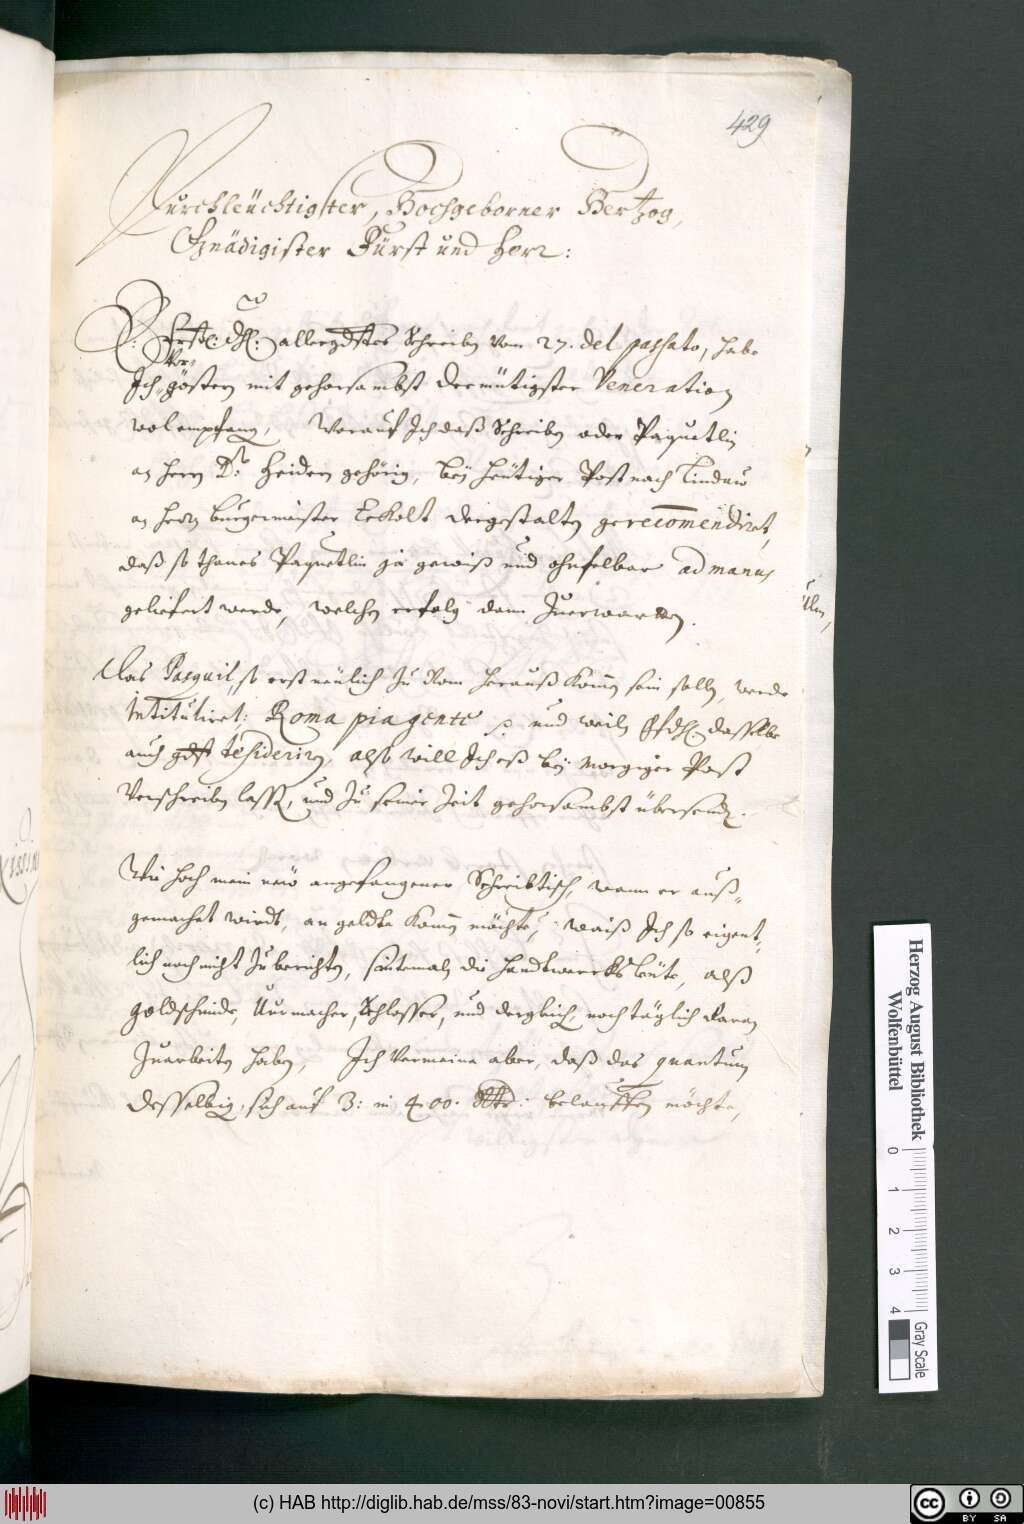 429
Durchleüchtigster, Hochgeborner Hertzog,
Gnädigister Fürst und Herr:
E: Frstl: Dhl: allergdstes Schreiben vom 27. del passato, habe
Vor-
Ich gestern mit gehorsambst demütigster Veneration
wol empfangen, Worauf Ich daß Schreiben oder Paquetlin
an Herrn Dr. Heiden gehörig, bey heütiger Post nach Lindaw
an Herrn Burgermaister Eckolt dergestalten gerecomendiret,
daß so thanes Paquetlin ja gewiß und ohnfelbar ad manus
geliefert werde, welchen erfolg dann Zuerwarten.
Das Pasquil, so erst neülich Zu Rom herauß kommen sein solle, werde
intituliret: Roma piagente und weilen dasselbe
auch gdst desiderirn, also will Ich eß bey morgiger Post
Verschreiben lassen, und Zu seiner Zeit gehorsambst übersenden.
Wie hoch mein new angefangener Schreibtisch, wann er auß-
gemachet wirdt, an geldte kommen möchte, waiß Ich so eigent-
lich noch nicht Zuberichten, sintemaln die Handtwerckhs Leüte, alß
Goldschmide, Uurmacher, Schlosser, und dergleich, noch täglich daran
Zuarbeiten haben, Ich Vermeine aber, daß das quantum
desselbigen, sich auf 3: in 400. Rtl: belauffen möchte,
Herzog August Bibliothek
Wolfenbüttel
0 1 2 3 4
Gray Scale
(c) HAB http://diglib.hab.de/mss/83-novi/start.htm?image=00855
cc BY SA